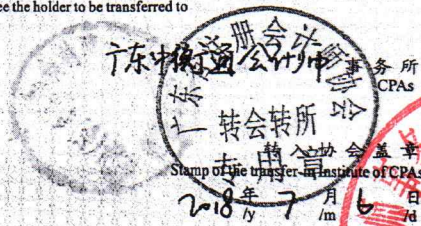 ee the holder to be transferred to
广东中 通会计师 事务所
CPAs
广东 册会计师协会
转会转所
专用章
转入协会盖章
Stamp of the transfer-in Institute of CPAs
2018 年 7 月 6 日
/y /m /d